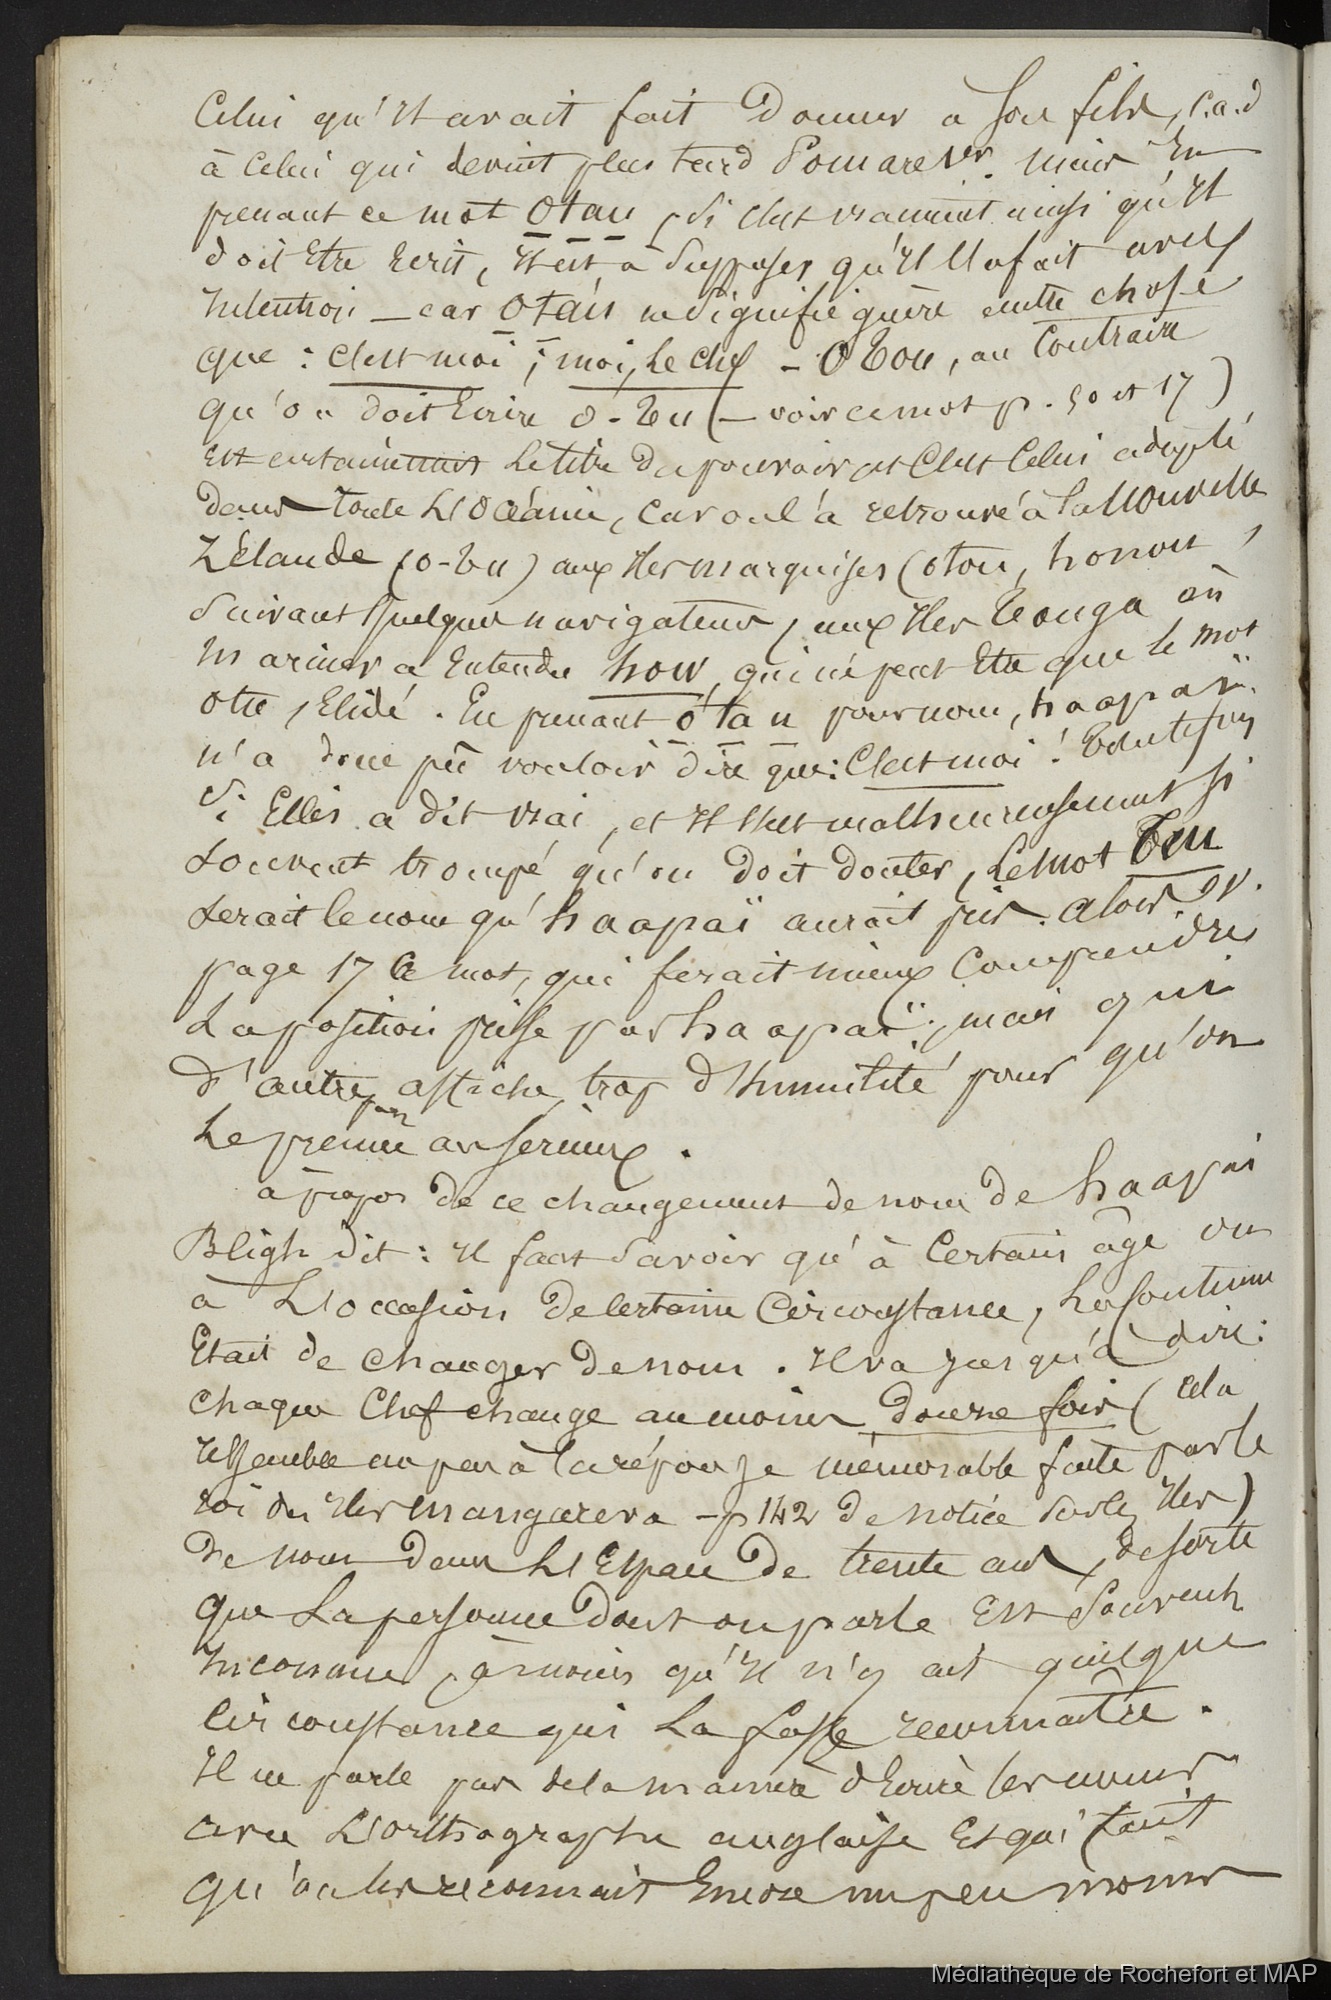 Celui qu'il avait fait donner a son fils, c.a.d
à celui qui devint plus tard Pomare 1er. mais En
prenant ce mot Otau, si c'est vraiment ainsi qu'il
doit Etre Ecrit, il est à supposer qu'il l'a fait avec
intention — car Otau ne signifie guère autre chose
que : c'est moi ; moi, le chef - O Tou, au contraire
qu'on doit Ecrire O-Tu (— voir ce mot p. 50 et 17)
est certainement le titre du pouvoir et c'est celui adopté
dans toute l'Océanie, car on l'a retrouvé à la Nouvelle
Zélande (O-Tu) aux iles marquises (otou, honou,
suivant quelques navigateurs, aux iles Tonga où
Mariner a Entendu how, qui ne peut Etre que le mot
otu, Elidé. En prenant o tau pour nom, haapaï
n'a donc pû vouloir dire que : C'est moi ! Toutefois
si Ellis a dit vrai, et il s'est malheureusement si
souvent trompé qu'on doit douter, le mot Teu
serait le nom qu'haapaï aurait pris. alors v.
page 17 ce mot, qui ferait mieux comprendre
la position prise par haapaï, mais qui
d'autre part affiche trop d'humilité pour qu'on
le prenne au serieux.
à propos de ce changement de nom de haapai
Bligh dit : il faut savoir qu'à certain âge ou
à l'occasion de certaine circonstance, la coutume
Etait de changer de nom. Il va jusqu'à dire :
chaque chef change au moins douze fois (cela
ressemble un peu à la réponse mémorable faite par le
roi des iles Mangareva - p 142 de notice sur les iles)
de nom dans l'Espace de trente ans, de sorte
que la personne dont on parle Est souvent
inconnue, à moins qu'il n'y ait quelque
circonstance qui la fasse reconnaître.
Il ne parle pas de la manière d'Ecrire les noms
avec l'orthographe anglaise Et qui fait
qu'on les reconnait Encore un peu moins
Médiathèque de Rochefort et MAP